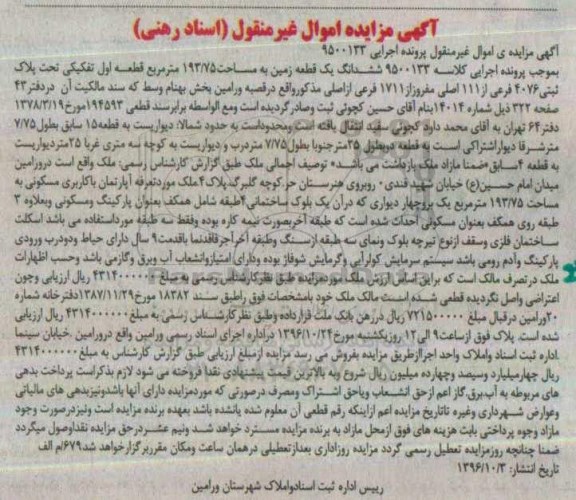 آگهی مزایده اموال غیرمنقول (اسناد رهنی)
آگهی مزایده ی اموال غیرمنقول پرونده اجرایی ۹۵۰۰۱۳۳
بموجب پرونده اجرایی کلاسه ۹۵۰۰۱۳۳ ششدانگ یک قطعه زمین به مساحت۱۹۳/۷۵ مترمربع قطعه اول تفکیکی تحت پلاک
ثبتی۴۰۷۶ فرعی از۱۱۱ اصلی مفروزاز۱۷۱۱ فرعی ازاصلی مذکورواقع درقصبه ورامین بخش بهنام وسط که سند مالکیت آن دردفتر۴۳
صفحه ۳۲۲ ذیل شماره ۱۴۰۱۴بنام آقای حسین کچوئی ثبت وصادرگردیده است ومع الواسطه برابرسند قطعی ۱۹۴۵۹۳مورخ۱۳۷۸/۳/۱۹
دفتر۶۴ تهران به آقای محمد دارد کچوئی سفید انتقال یافته است ومحدوداست به حدود شمالا: دیواریست به قطعه۱۵ سابق بطول۷/۷۵
مترشرقا دیواراشتراکی است به قطعه دوبطول ۲۵مترجنوبا بطول۷/۷۵ متردرب و دیواریست به کوچه سه متری غربا ۲۵متردیواریست
به قطعه ۴سابق«ضمنا مازاد ملک بازداشت می باشد» توصیف اجمالی ملک طبق گزارش کارشناس رسمی: ملک واقع است درورامین
میدان امام حسین(ع) خیابان شهید قندی - روبروی هنرستان حر کوچه گلبرگ پلاک۴ملک موردتعرفه آپارتمان باکاربری مسکونی به
مساحت ۱۹۳/۷۵ مترمربع یک بروچهار دیواری که درآن یک بلوک ساختمانی۴طبقه شامل همکف بعنوان پارکینگ ومسکونی وبعلاوه ۳
طبقه روی همکف بعنوان مسکونی احداث شده است که طبقه آخربصورت نیمه کاره بوده وفقط سه طبقه مورداستفاده می باشد اسکلت
ساختمان فلزی وسقف ازنوع تیرچه بلوک ونمای سه طبقه ازسنگ وطبقه آخرآجرفاقدنما باقدمت۹ سال دارای حیاط ودودرب ورودی
پارکینگ وآدم رومی باشد سیستم سرمایش کولرآبی وگرمایش شوفاژ بوده ودارای امتیازوانشعاب آب وبرق وگازمی باشد وحسب اظهارات
ملک درتصرف مالک است که براین اساس ارزش ملک موردمزایده طبق نظرکارشناس رسمی به مبلغ ۴۳۱۴۰۰۰۰۰۰ ریال ارزیابی وچون
اعتراضی واصل نگردیده قطعی شده است مالک ملک خود بامشخصات فوق راطبق سند ۱۸۳۸۲ مورخ۱۳۸۷/۱۱/۲۹دفترخانه شماره
۲۰ورامین درقبال مبلغ ۷۲۱۵۰۰۰۰۰ ریال دررهن بانک ملت قرارداده وطبق نظرکارشناس رسمی به مبلغ۴۳۱۴۰۰۰۰۰۰ ریال ارزیابی
شده است. پلاک فوق ازساعت۹ الی۱۲ روزیکشنبه مورخ۱۳۹۶/۱۰/۲۴ دراداره اجرای اسناد رسمی ورامین واقع درورامین .خیابان سینما
.اداره ثبت اسناد واملاک واحد اجراازطریق مزایده بفروش می رسد مزایده ازمبلغ ارزیابی طبق گزارش کارشناس به مبلغ۴۳۱۴۰۰۰۰۰۰
ریال چهارمیلیارد وسیصد وچهارده میلیون ریال شروع وبه بالاترین قیمت پیشنهادی نقدا فروخته می شود لازم بذکراست پرداخت بدهی
های مربوطه به آب.برق.گاز اعم ازحق انشعاب ویاحق اشتراک ومصرف درصورتی که موردمزایده دارای آنها باشدونیزبدهی های مالیاتی
وعوارض شهرداری وغیره تاتاریخ مزایده اعم ازاینکه رقم قطعی آن معلوم شده یانشده باشد بعهده برنده مزایده است ونیزدرصورت وجود
مازاد وجوه پرداختی بابت هزینه های فوق ازمحل مازاد به برنده مزایده مسترد خواهد شد ونیم عشردرحق مزایده نقداوصول میگردد
ضمنا چنانچه روزمزایده تعطیل رسمی گردد مزایده روزاداری بعدازتعطیلی درهمان ساعت ومکان مقرربرگزارخواهد شد.۶۷۹م الف
تاریخ انتشار: ۱۳۹۶/۱۰/۳
رییس اداره ثبت اسنادواملاک شهرستان ورامین